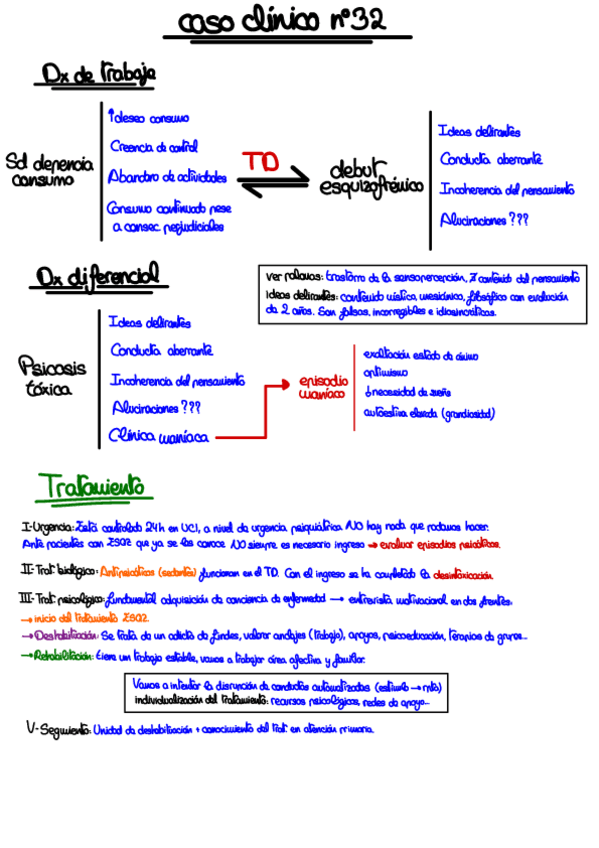 caso clínico nº32
Dx de trabajo
Sd depencia
consumo
↑deseo consumo
Creencia de control
Abandono de actividades
Consumo continuado pese
a consec perjudiciales
TD
debut
esquizofrénico
Ideas delirantes
Conducta aberrante
Incoherencia del pensamiento
Alucinaciones ???
Dx diferencial
ver palomas: trastorno de la sensopercepción, ≠ contenido del pensamiento
ideas delirantes: contenido mística, mesiánica, filosófico con evolución
de 2 años. Son falsas, incorregibles e idiosincráticas.
Psicosis
tóxica
Ideas delirantes
Conducta aberrante
Incoherencia del pensamiento
Alucinaciones ???
Clínica maníaca
episodio
maníaco
exaltación estado de ánimo
optimismo
↓necesidad de sueño
autoestima elevada (grandiosidad)
Tratamiento
I-Urgencia: Está controlado 24h en UCI, a nivel de urgencia psiquiátrica NO hay nada que podamos hacer.
Ante pacientes con ESQZ que ya se les conoce NO siempre es necesario ingreso → evaluar episodios psicóticos.
II-Trat biológico: Antipsicóticos (sedantes) funcionan en el TD. Con el ingreso se ha completado la desintoxicación.
III-Trat psicológico: fundamental adquisición de conciencia de enfermedad → entrevista motivacional en dos frentes.
→ inicio del tratamiento ESQZ.
→ Deshabituación: Se trata de un adicto de findes, valorar anclajes (trabajo), apoyos, psicoeducación, terapias de grupo...
→ Rehabilitación: tiene un trabajo estable, vamos a trabajar área afectiva y familiar.
Vamos a intentar la disrupción de conductas automatizadas (estímulo → rta)
individualización del tratamiento: recursos psicológicos, redes de apoyo...
V-Seguimiento: Unidad de deshabituación + conocimiento del trat en atención primaria.